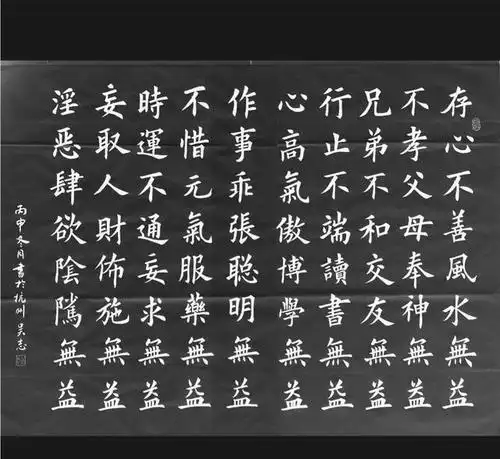 存心不善風水無益
不孝父母奉神無益
兄弟不和交友無益
行止不端讀書無益
心高氣傲博學無益
作事乖張聪明無益
不惜元氣服藥無益
時運不通妄求無益
妄取人財佈施無益
淫惡肆欲陰騭無益
丙申冬月書於杭州吴志